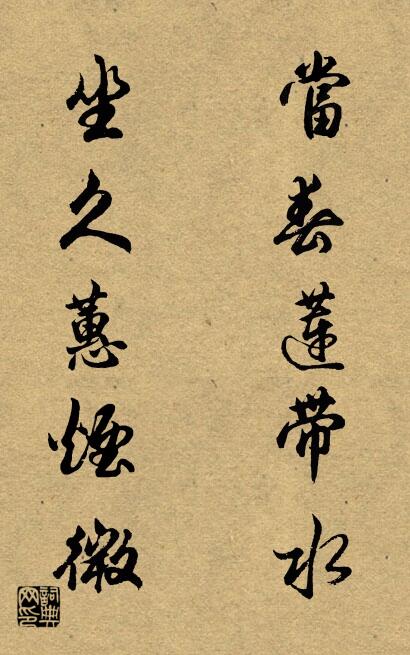 當春蓮帶水
坐久蕙煙微
詞典網印